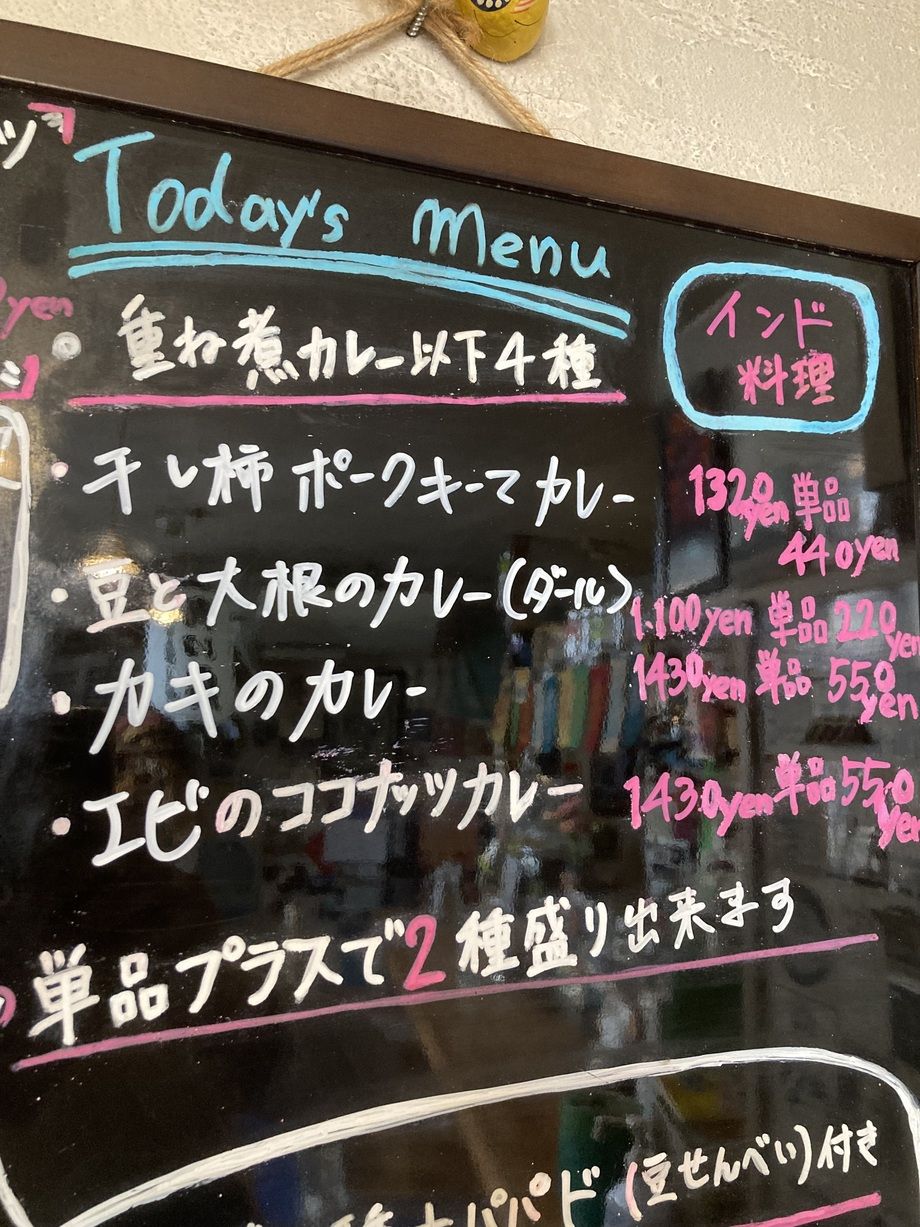 Today's Menu
インド
料理
重ね煮カレー以下4種
・干し柿ポークキーマカレー 1320yen 単品
440yen
・豆と大根のカレー(ダール) 1.100yen 単品 220yen
・カキのカレー 1430yen 単品 550yen
・エビのココナッツカレー 1430yen 単品 550yen
単品プラスで2種盛り出来ます
パパド(豆せんべい)付き